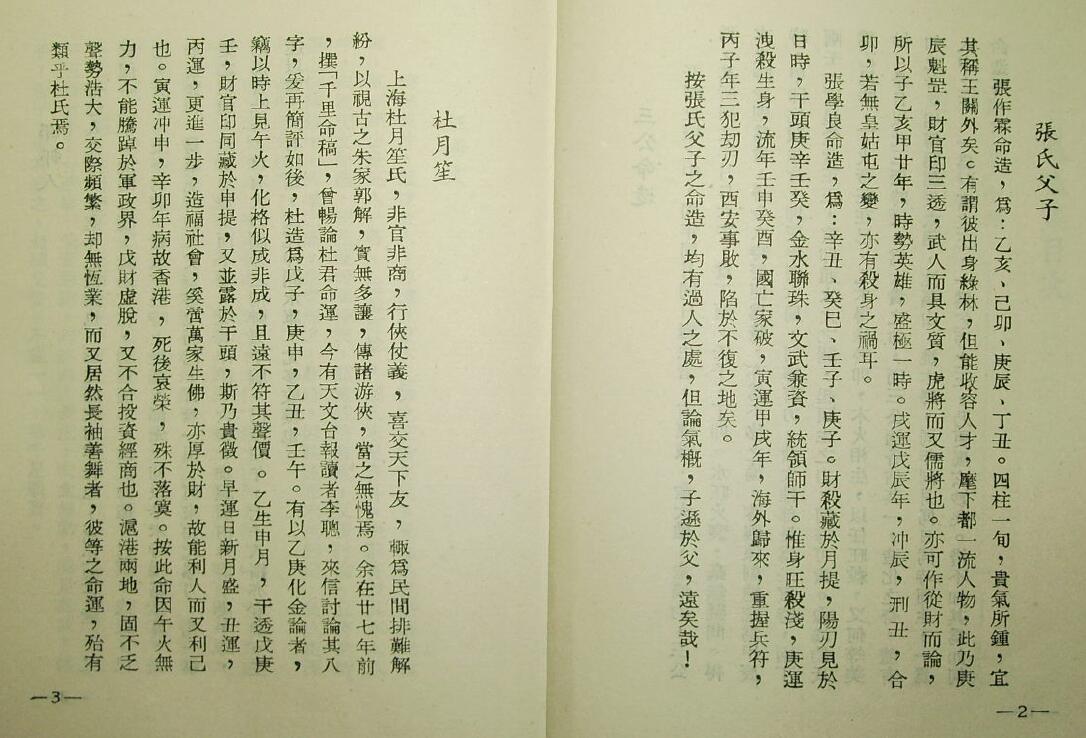 張氏父子
張作霖命造，爲：乙亥、己卯、庚辰、丁丑。四柱一旬，貴氣所鍾，宜
其稱王關外矣。有謂彼出身綠林，但能收容人才，麾下都一流人物，此乃庚
辰魁罡，財官印三透，武人而具文質，虎將而又儒將也。亦可作從財而論，
所以子乙亥甲廿年，時勢英雄，盛極一時。戌運戊辰年，冲辰，刑丑，合
卯，若無皇姑屯之變，亦有殺身之禍耳。
張學良命造，爲：辛丑、癸巳、壬子、庚子。財殺藏於月提，陽刃見於
日時，干頭庚辛壬癸，金水聯珠，文武兼資，統領師干。惟身旺殺淺，庚運
洩殺生身，流年壬申癸酉，國亡家破，寅運甲戌年，海外歸來，重握兵符，
丙子年三犯刧刃，西安事敗，陷於不復之地矣。
按張氏父子之命造，均有過人之處，但論氣概，子遜於父，遠矣哉！
—2—
杜月笙
上海杜月笙氏，非官非商，行俠仗義，喜交天下友，輙爲民間排難解
紛，以視古之朱家郭解，實無多讓，傳諸游俠，當之無愧焉。余在廿七年前
，撰「千里命稿」，曾暢論杜君命運，今有天文台報讀者李聰，來信討論其八
字，爰再簡評如後，杜造爲戊子，庚申，乙丑，壬午。有以乙庚化金論者，
竊以時上見午火，化格似成非成，且遠不符其聲價。乙生申月，干透戊庚
壬，財官印同藏於申提，又並露於干頭，斯乃貴徵。早運日新月盛，丑運，
丙運，更進一步，造福社會，奚啻萬家生佛，亦厚於財，故能利人而又利己
也。寅運冲申，辛卯年病故香港，死後哀榮，殊不落寞。按此命因午火無
力，不能騰踔於軍政界，戊財虛脫，又不合投資經商也。滬港兩地，固不乏
聲勢浩大，交際頻繁，却無恆業，而又居然長袖善舞者，彼等之命運，殆有
類乎杜氏焉。
—3—